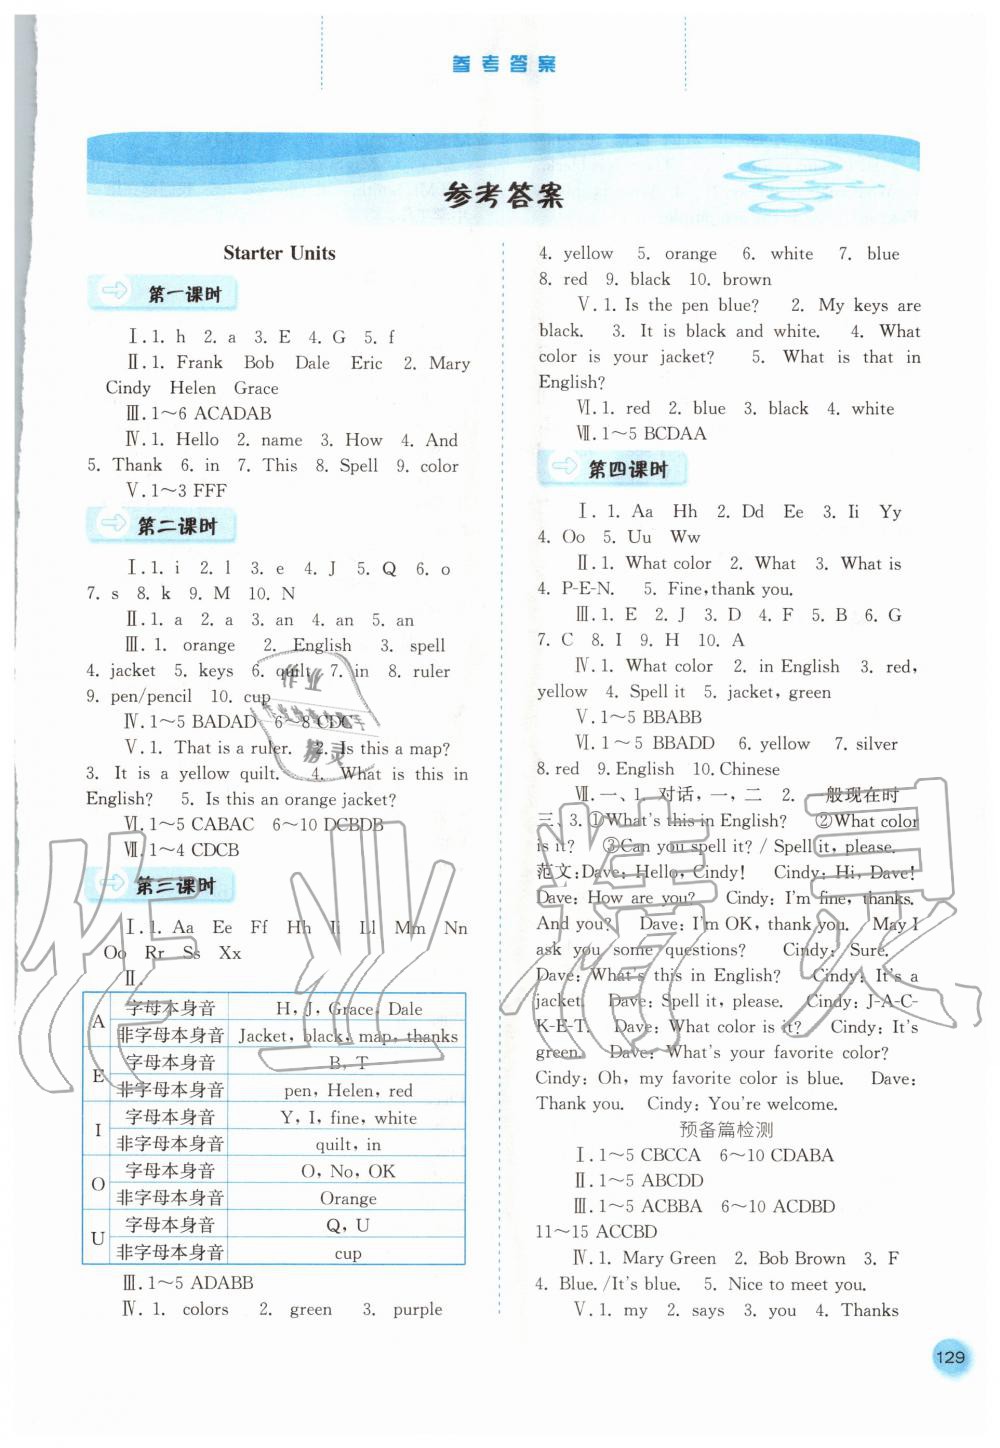 参考答案
参考答案
Starter Units
第一课时
Ⅰ. 1. h 2. a 3. E 4. G 5. f
Ⅱ. 1. Frank Bob Dale Eric 2. Mary
Cindy Helen Grace
Ⅲ. 1～6 ACADAB
Ⅳ. 1. Hello 2. name 3. How 4. And
5. Thank 6. in 7. This 8. Spell 9. color
Ⅴ. 1～3 FFF
第二课时
Ⅰ. 1. i 2. l 3. e 4. J 5. Q 6. o
7. s 8. k 9. M 10. N
Ⅱ. 1. a 2. a 3. an 4. an 5. an
Ⅲ. 1. orange 2. English 3. spell
4. jacket 5. keys 6. quilt 7. in 8. ruler
9. pen/pencil 10. cup
Ⅳ. 1～5 BADAD 6～8 CDC
Ⅴ. 1. That is a ruler. 2. Is this a map?
3. It is a yellow quilt. 4. What is this in
English? 5. Is this an orange jacket?
Ⅵ. 1～5 CABAC 6～10 DCBDB
Ⅶ. 1～4 CDCB
第三课时
Ⅰ. 1. Aa Ee Ff Hh Ii Ll Mm Nn
Oo Rr Ss Xx
Ⅱ.
A 字母本身音 H, J, Grace, Dale
非字母本身音 Jacket, black, map, thanks
E 字母本身音 B, T
非字母本身音 pen, Helen, red
I 字母本身音 Y, I, fine, white
非字母本身音 quilt, in
O 字母本身音 O, No, OK
非字母本身音 Orange
U 字母本身音 Q, U
非字母本身音 cup
Ⅲ. 1～5 ADABB
Ⅳ. 1. colors 2. green 3. purple
4. yellow 5. orange 6. white 7. blue
8. red 9. black 10. brown
Ⅴ. 1. Is the pen blue? 2. My keys are
black. 3. It is black and white. 4. What
color is your jacket? 5. What is that in
English?
Ⅵ. 1. red 2. blue 3. black 4. white
Ⅶ. 1～5 BCDAA
第四课时
Ⅰ. 1. Aa Hh 2. Dd Ee 3. Ii Yy
4. Oo 5. Uu Ww
Ⅱ. 1. What color 2. What 3. What is
4. P-E-N. 5. Fine, thank you.
Ⅲ. 1. E 2. J 3. D 4. F 5. B 6. G
7. C 8. I 9. H 10. A
Ⅳ. 1. What color 2. in English 3. red,
yellow 4. Spell it 5. jacket, green
Ⅴ. 1～5 BBABB
Ⅵ. 1～5 BBADD 6. yellow 7. silver
8. red 9. English 10. Chinese
Ⅶ. 一、1. 对话，一，二 2. 一般现在时
三、3. ①What's this in English? ②What color
is it? ③Can you spell it? / Spell it, please.
范文：Dave: Hello, Cindy! Cindy: Hi, Dave!
Dave: How are you? Cindy: I'm fine, thanks.
And you? Dave: I'm OK, thank you. May I
ask you some questions? Cindy: Sure.
Dave: What's this in English? Cindy: It's a
jacket. Dave: Spell it, please. Cindy: J-A-C-
K-E-T. Dave: What color is it? Cindy: It's
green. Dave: What's your favorite color?
Cindy: Oh, my favorite color is blue. Dave:
Thank you. Cindy: You're welcome.
预备篇检测
Ⅰ. 1～5 CBCCA 6～10 CDABA
Ⅱ. 1～5 ABCDD
Ⅲ. 1～5 ACBBA 6～10 ACDBD
11～15 ACCBD
Ⅳ. 1. Mary Green 2. Bob Brown 3. F
4. Blue. /It's blue. 5. Nice to meet you.
Ⅴ. 1. my 2. says 3. you 4. Thanks
129
作业精灵